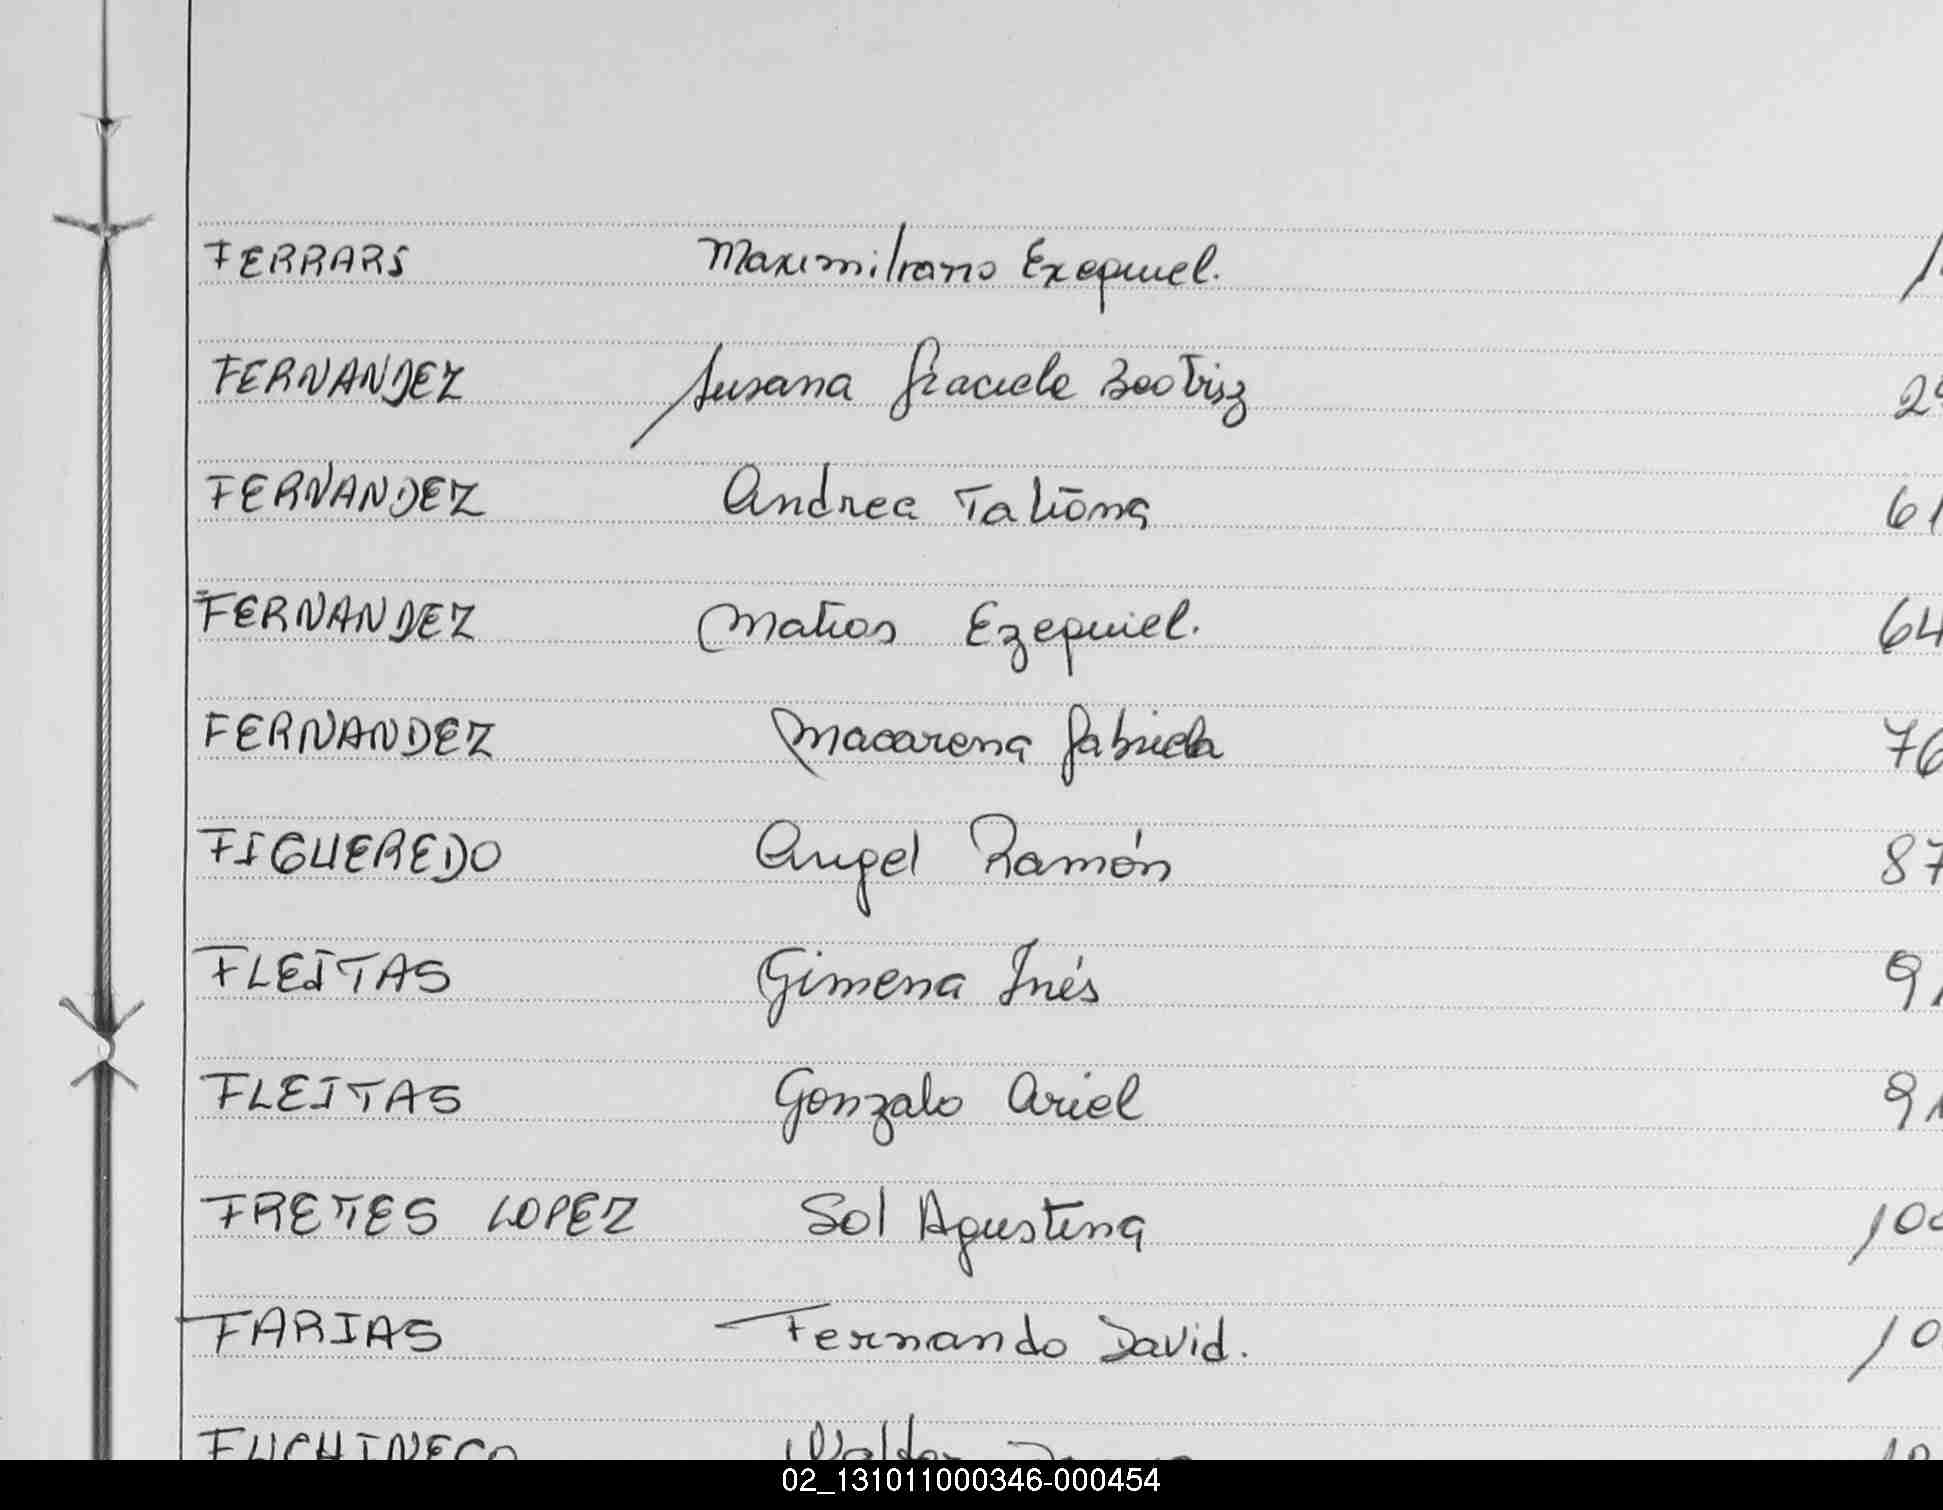 FERRARI Maximiliano Exequiel.
FERNANDEZ Susana Graciela Beatriz 29
FERNANDEZ Andrea Tatiana 61
FERNANDEZ Matias Ezequiel. 64
FERNANDEZ Macarena Gabriela 76
FIGUEREDO Angel Ramón 87
FLEITAS Gimena Inés 91
FLEITAS Gonzalo Ariel 91
FRETES LOPEZ Sol Agustina 100
FARIAS Fernando David. 10
02_131011000346-000454